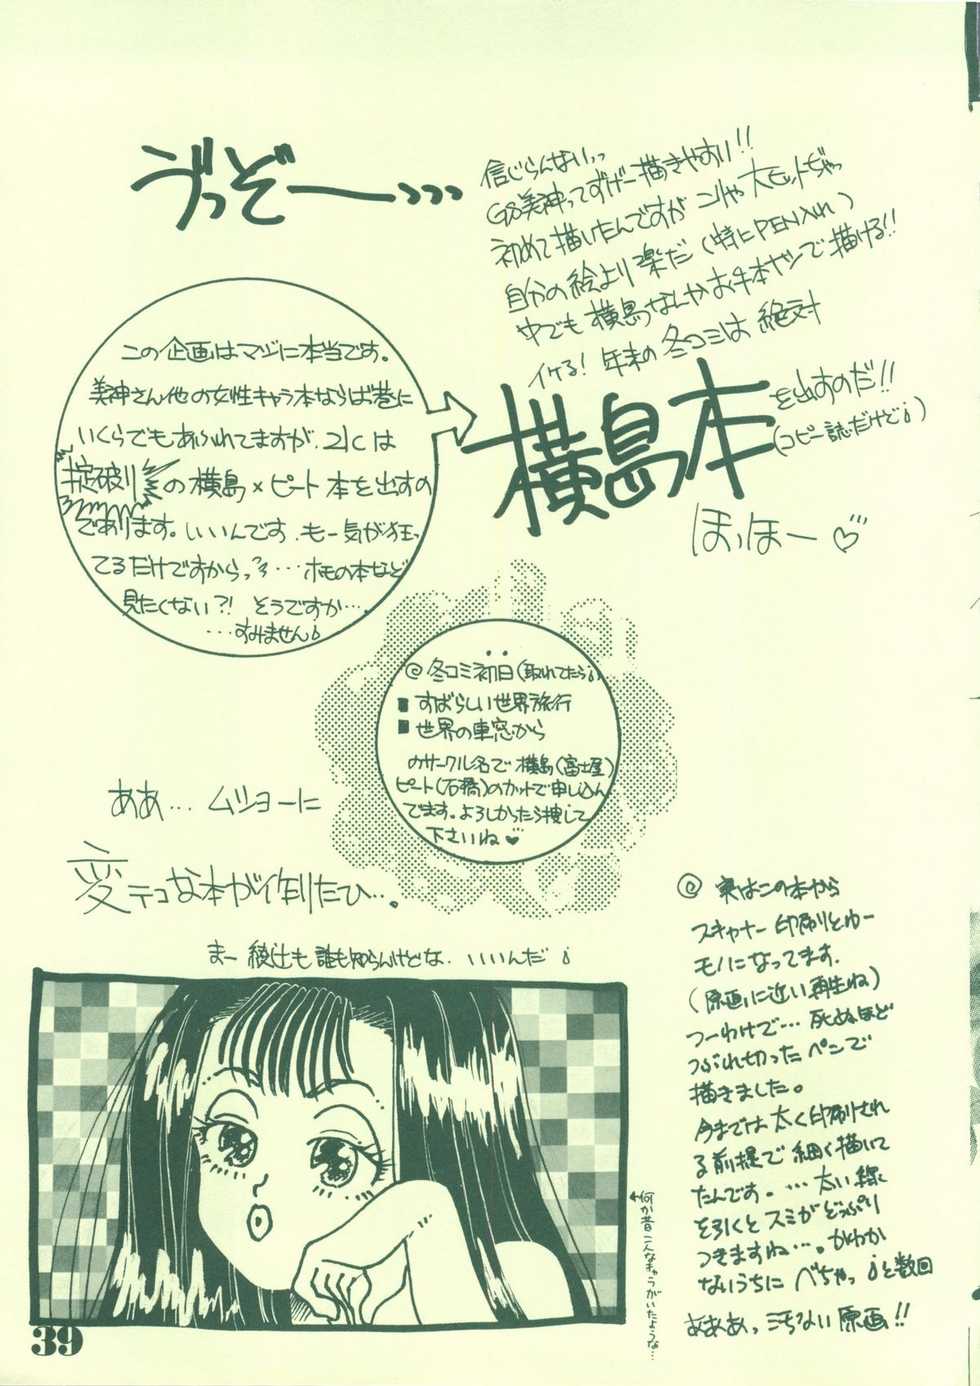 ゔっぞー、、、、
信じらんないっ
GS美神ってすげー描きやすい!!
初めて描いたんですが こりゃ大ヒットぢゃっ
自分の絵より楽だ(特にPEN入れ)
中でも 横島なんかお手本ナシで描ける!!
イケる! 年末の冬コミは絶対
横島本
を出すのだ!!
(コピー誌だけど)
ほっほー♡
この企画はマジに本当です。
美神さん他の女性キャラ本ならば巷に
いくらでもあふれてますが、21Cは
掟破りの横島×ピート本を出すの
であります。いいんです、もー気が狂っ
てるだけですからっ…ホモの本など
見たくない?! そうですか…。
…すみません
◎冬コミ初日(取れてたら)
■すばらしい世界旅行
■世界の車窓から
のサークル名で横島(富士屋)
ピート(石橋)のカットで申し込ん
でます。よろしかったら捜して
下さいね♥
ああ… ムショーに
変テコな本が作りたひ…。
まー 綾辻も誰も知らんけどな、いいんだ
◎実はこの本から
スキャナー印刷とゆー
モノになってます.
(原画に近い再生ね)
つーわけで…死ぬほど
つぶれ切ったペンで
描きました。
今までは太く印刷され
る前提で細く描いて
たんです。…太い線
を引くとスミがどっぷり
つきますね…。かわか
ないうちにべちゃっと数回
あああっ、きちない原画!!
何か昔こんなキャラがいたような…
39